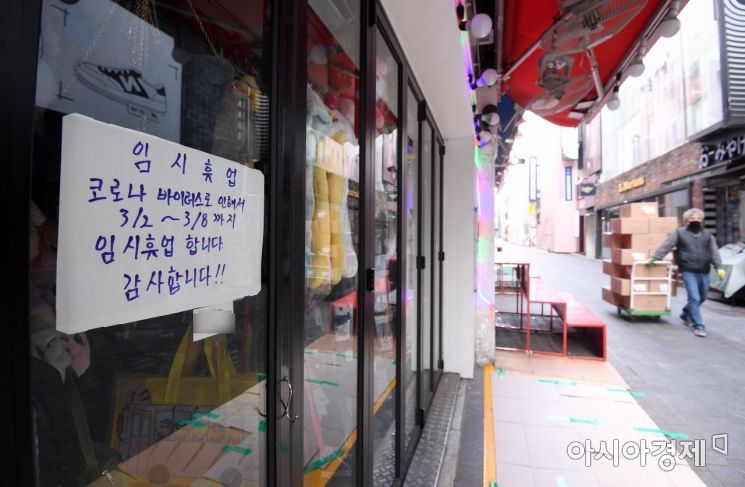 임시휴업
코로나 바이러스로 인해서
3/2 ~ 3/8 까지
임시휴업 합니다
감사합니다!!
아시아경제